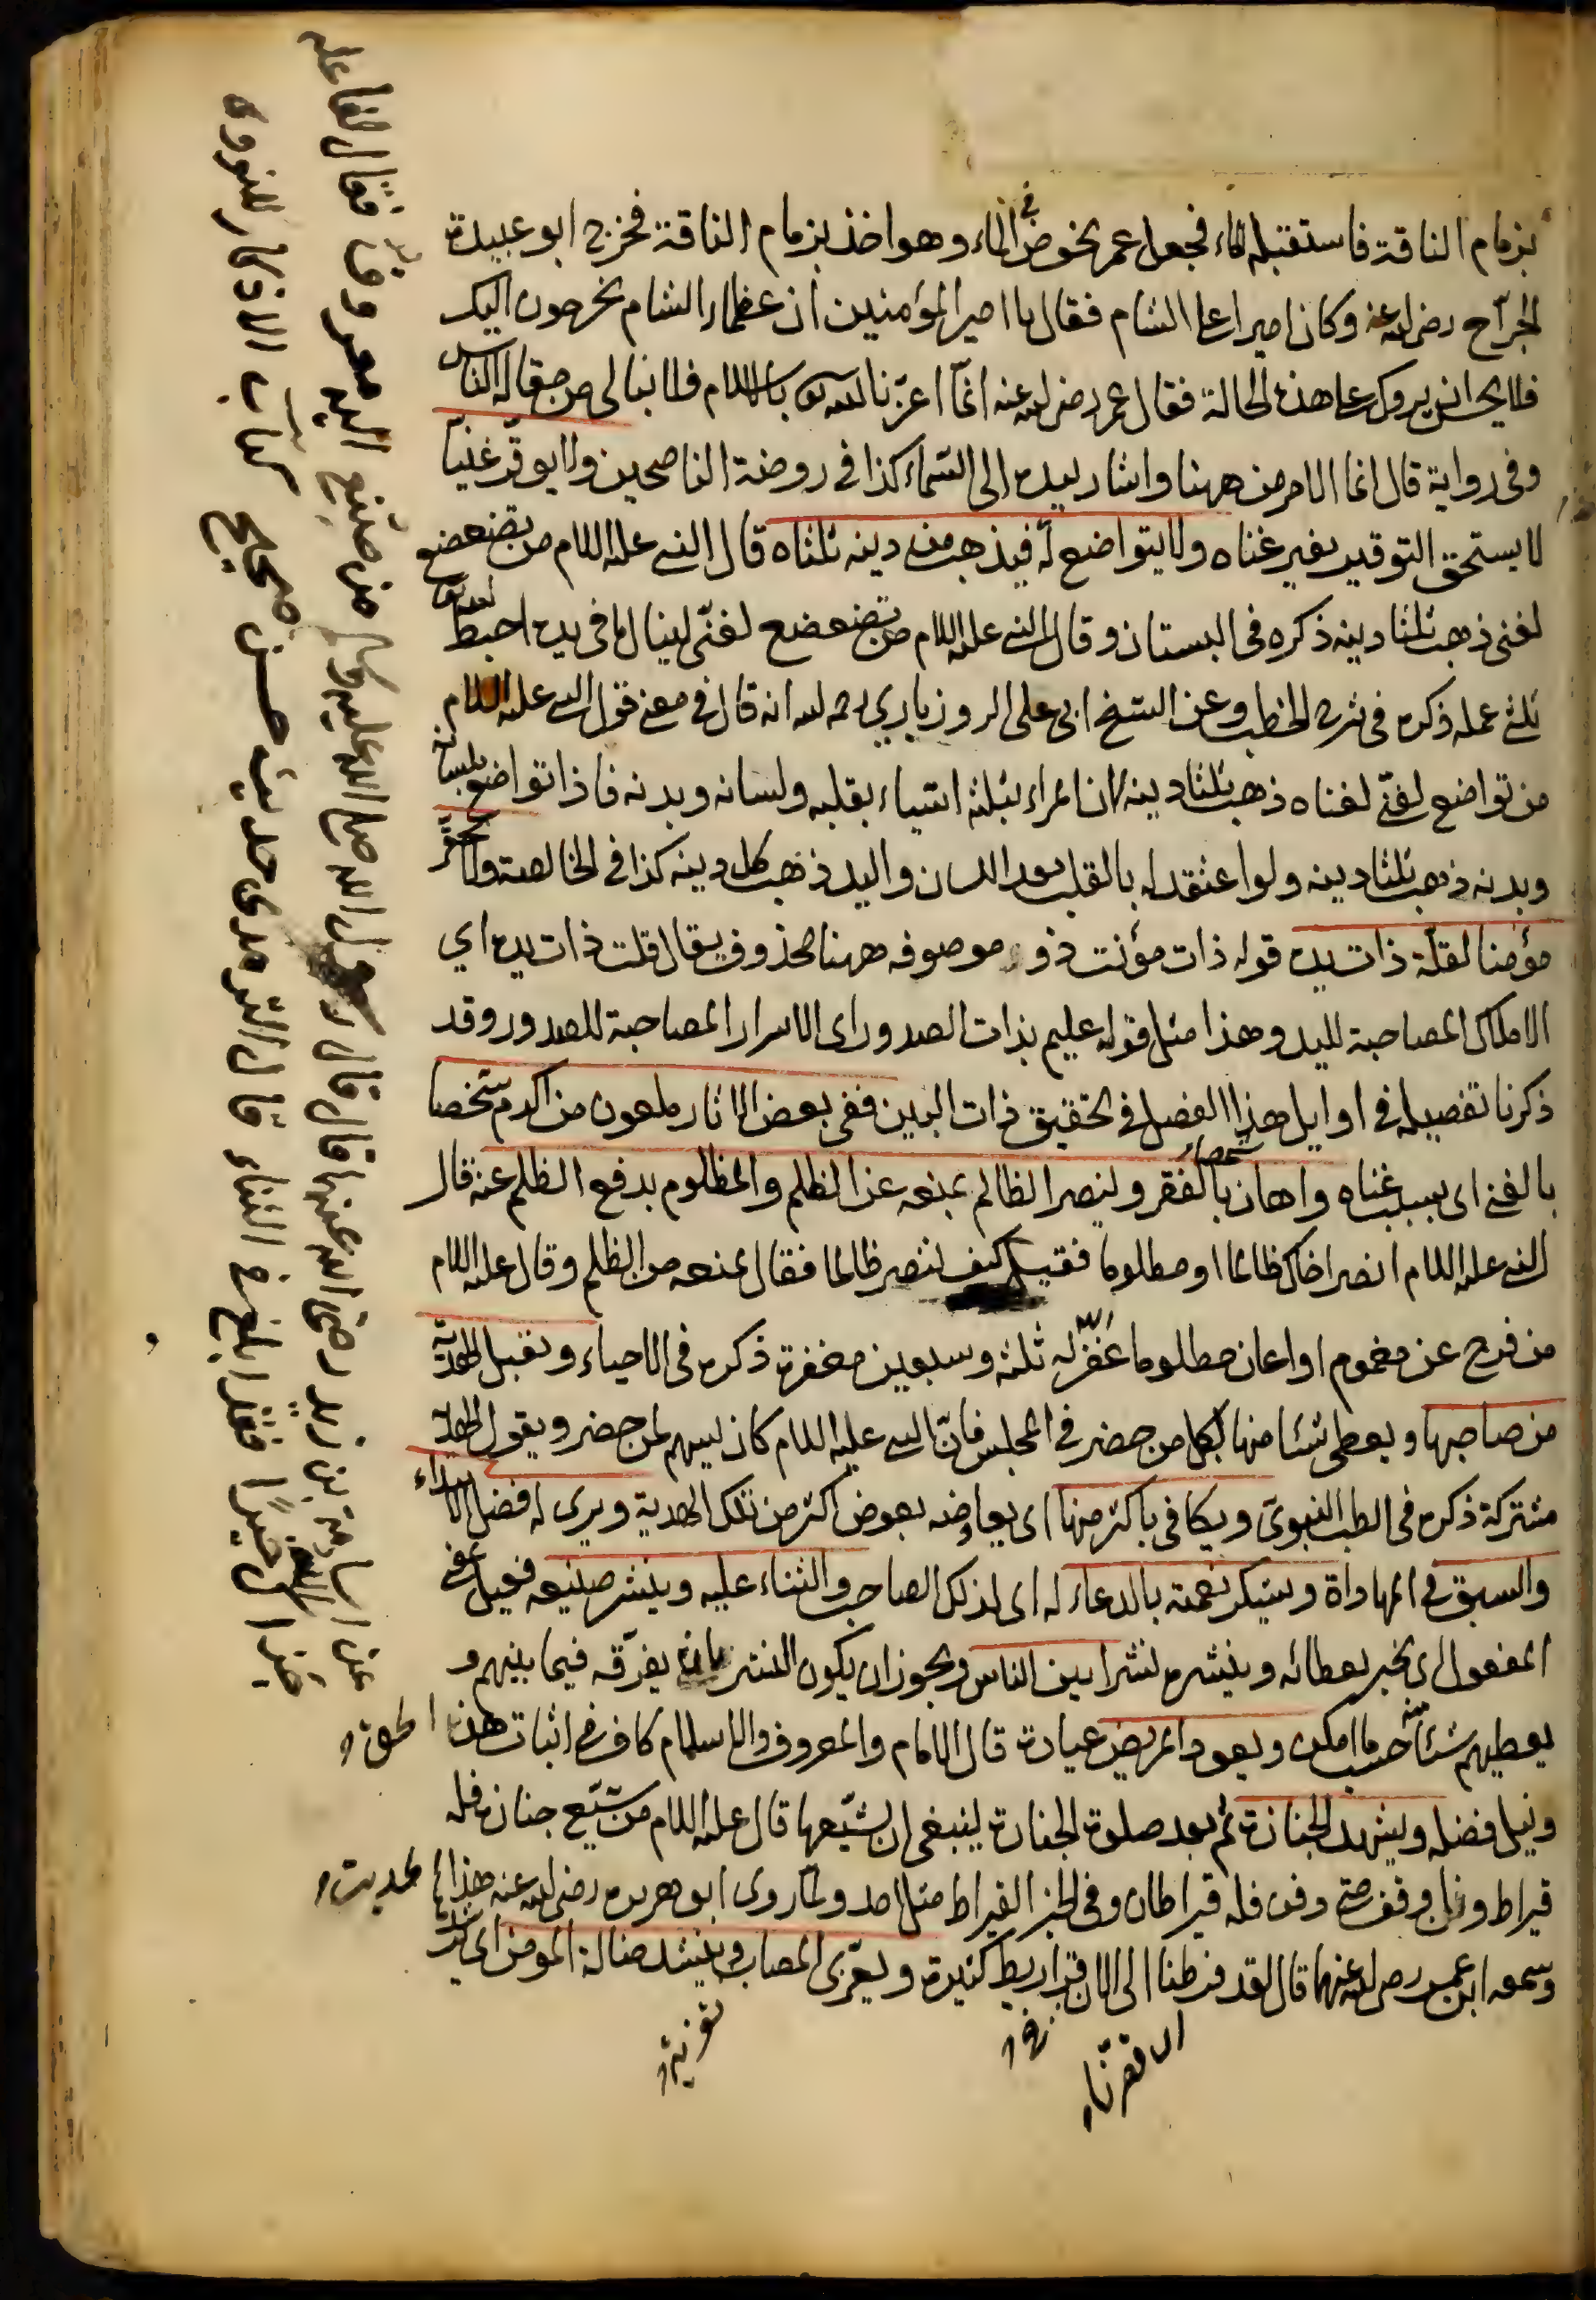 بزمام الناقة فاستقبله الماء فجعل عمر يخوض في الماء وهو اخذ بزمام الناقة فخرج ابو عبيدة
الجراح رضى الله عنه وكان اميرا على الشام فقال يا امير المؤمنين ان عظماء الشام يخرجون اليك
فلا يحسن ان يروك على هذه الحالة فقال عمر رضى الله عنه انما اعزنا الله تعالى بالاسلام فلا نبالى من مقالة الناس
وفى رواية قال انما الامر من ههنا واشار بيده الى السماء كذا فى روضة الناصحين ولا يوقر غنيا
لا يستحق التوقير بغير غناه ولا يتواضع له فيذهب من دينه ثلثاه قال النبى عليه السلام من تضعضع
لغنى ذهب ثلثا دينه ذكره فى البستان وقال النبى عليه السلام من تضعضع لغنى لينال ما فى يده احبط الله تعالى
ثلثى عمله ذكره فى شرح الخطب وعن الشيخ ابى على الروزبارى رحمه الله انه قال فى معنى قول النبى عليه السلام
من تواضع لغنى لغناه ذهب ثلثا دينه لان المراء بثلثة اشياء بقلبه ولسانه وبدنه فاذا تواضع بلسانه
وبدنه ذهب ثلثا دينه ولو اعتقد له بالقلب بعد اللسان واليد ذهب كل دينه كذا فى الخالصة ولا يحقر
مؤمنا لقلة ذات يده قوله ذات مؤنث ذو موصوفه ههنا محذوف يقال قلت ذات يده اي
الاملاك المصاحبة لليد وهذا مثل قوله عليم بذات الصدور اى الاسرار المصاحبة للصدور وقد
ذكرنا تفصيله فى اوايل هذا الفصل فى تحقيق ذات البين ففى بعض الاثار ملعون من اكرم شخصا
بالغنى اى بسبب غناه واهان شخصا بالفقر ولينصر الظالم بمنعه عن الظلم والمظلوم بدفع الظلم عنه قال
النبى عليه السلام انصر اخاك ظالما او مظلوما فقيل كيف ننصر ظالما فقال بمنعه من الظلم وقال عليه السلام
من فرج عن مغموم او اعان مظلوما غفر الله له ثلثة وسبعين مغفرة ذكره فى الاحياء ويقبل الهدية
من صاحبها ويعطى شئا منها لكل من حضر فى المجلس فان النبى عليه السلام كان يسهم لمن حضر ويقول الهدية
مشتركة ذكره فى الطب النبوى ويكافى باكثر منها اى يعاوضه بعوض اكثر من تلك الهدية ويرى له فضل الابتداء
والسبق فى المهاداة ويشكر نعمته بالدعاء له اى لذلك الصاحب والثناء عليه وينشر صنيعه فعيل بمعنى
المفعول اى يخبر بعطائه وينشره نشرا بين الناس ويجوز ان يكون النشر بان يفرقه فيما بينهم و
يعطيهم شئا منه حسب ما امكن ويعود المريض عيادة قال الامام والمعروف والاسلام كاف فى اثبات هذا الحق
ونيل فضله ويشهد الجنازة ثم بعد صلوة الجنازة ينبغى ان يشيعها قال عليه السلام من شيع جنازة فله
قيراط وان وقف حتى دفن فله قيراطان وفى الخبر القيراط مثل احد ولما روى ابو هريرة رضى الله عنه هذا الحديث
وسمعه ابن عمر رضى الله عنهما قال لقد فرطنا الى الان قراريط كثيرة ويعزى المصاب وينشد ضالة المؤمن اى
تعزية
عن اسامة بن زيد رضى الله عنهما قال قال رسول الله صلى الله عليه وسلم من صنع اليه معروف فقال لفاعله
جزاك الله خيرا فقد ابلغ فى الثناء قال الترمذى حديث حسن صحيح كتاب الاذكار للنووى